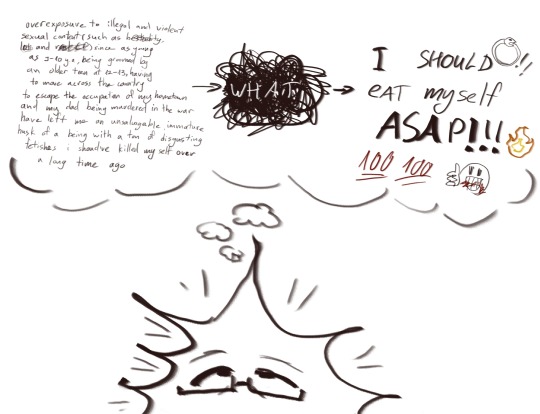 overexposure to illegal and violent
sexual content (such as
and since as young
as 9-10 y.o, being groomed by
an older teen at 12-13, having
to move across the country
to escape the occupation of my hometown
and my dad being murdered in the war
have left me an unsalvagable, immature
husk of a being with a ton of disgusting
fetishes i should've killed myself over
a long time ago
WHAT
I SHOULD !!
eAT myself
ASAP!!!
100 100